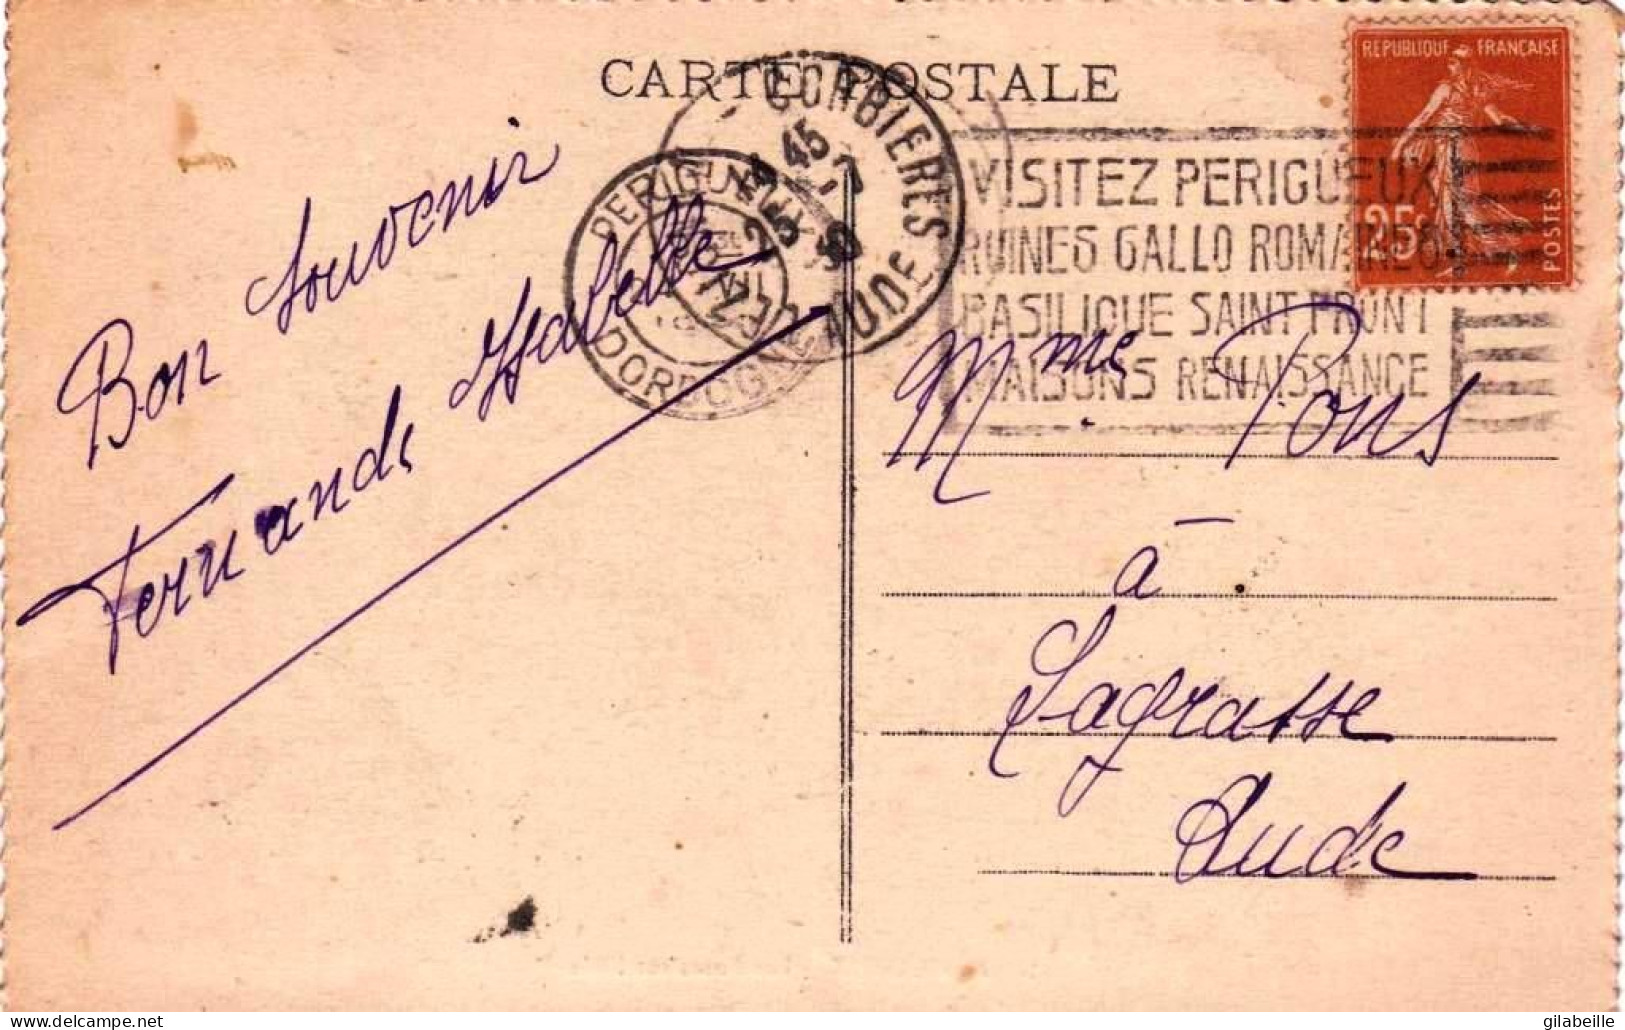 CARTE POSTALE
REPUBLIQUE FRANÇAISE
25c
POSTES
VISITEZ PERIGUEUX
RUINES GALLO ROMAINES
BASILIQUE SAINT FRONT
MAISONS RENAISSANCE
PERIGUEUX
DORDOGNE
CORBIERES
AUDE
45
Bon souvenir
Fernande Isabelle
Mme Pons
à
Lagrasse
Aude
delcampe.net
gilabeille